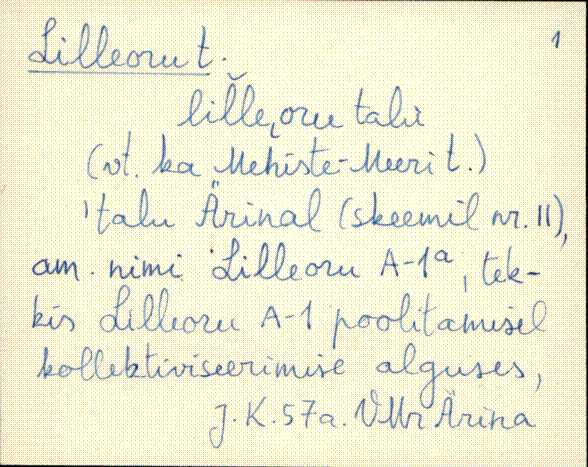 1
Lilleoru t.
lil̆le̮oru talù
(vt. ka Mehiste-Meeri t.)
'talu Ärinal (skeemil nr. 11),
am. nimi Lilleoru A-1ª, tek-
kis Lilleoru A-1 poolitamisel
kollektiviseerimise alguses,
J.K. 57a. VMr Ärina